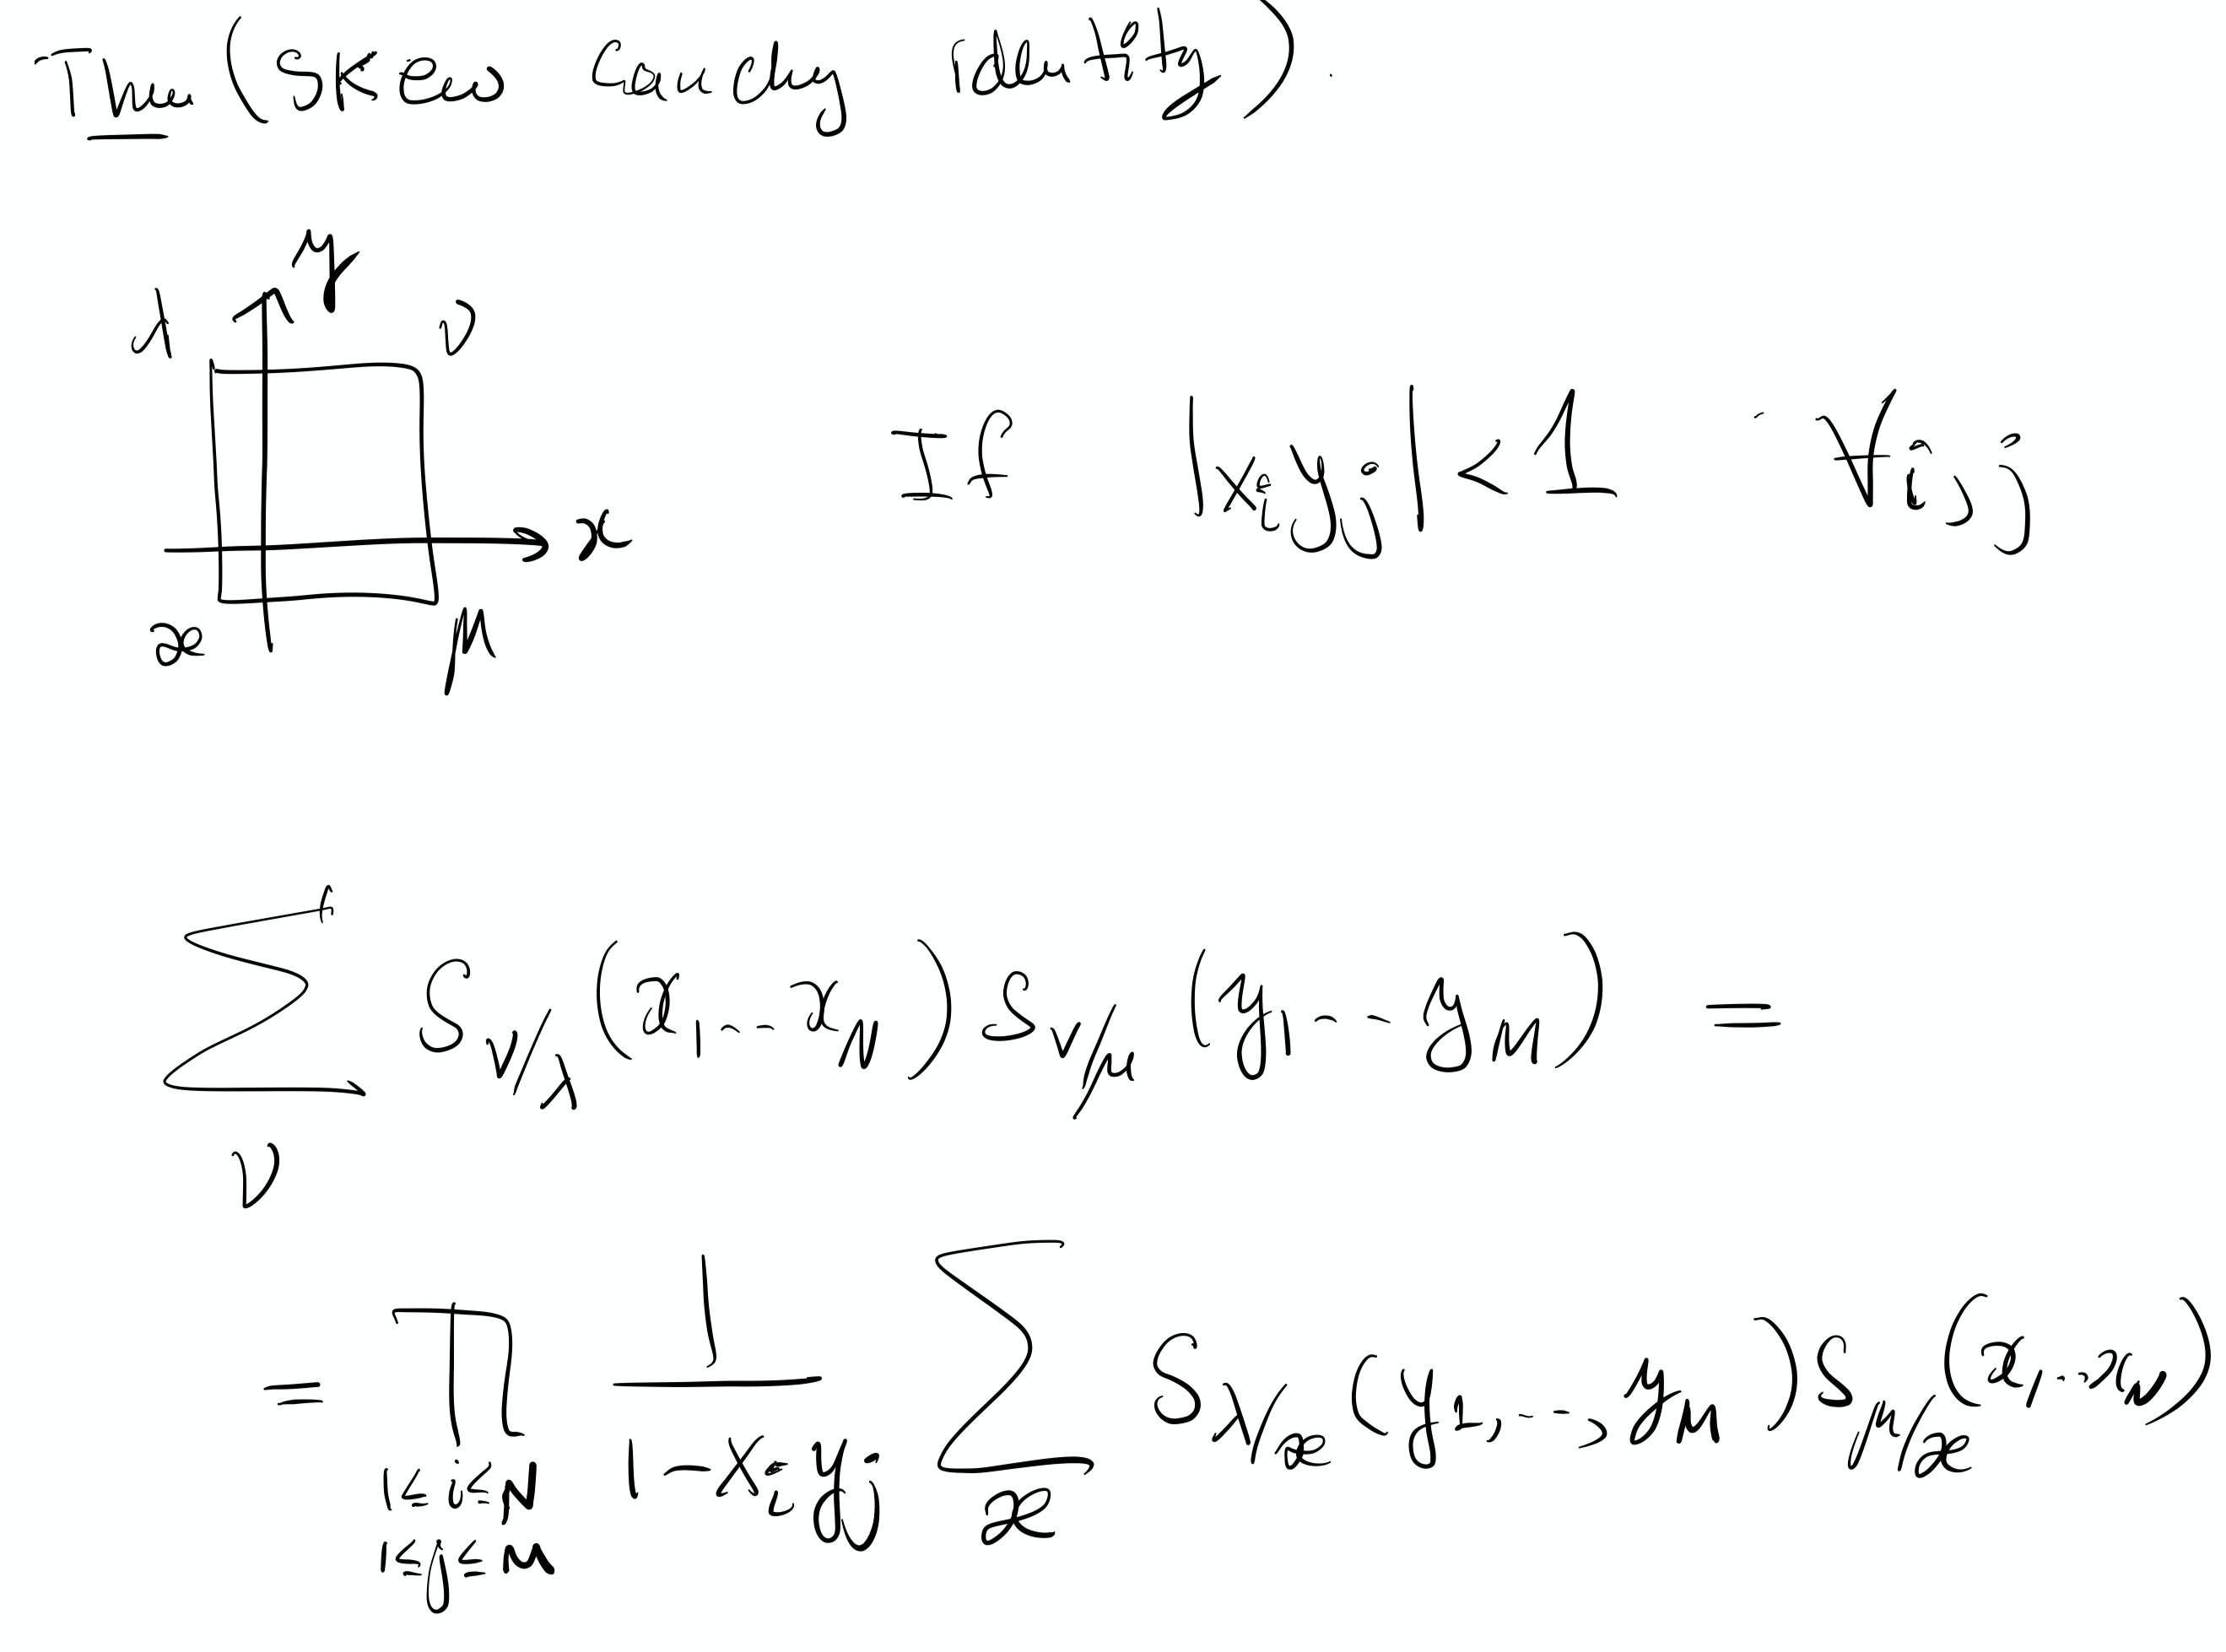 Thm (Skew Cauchy identity).
y
λ ν
If |x_i y_j| < 1 ∀i, j
x
æ μ
∑_ν S_{ν/λ}(x_1 -- x_n) S_{ν/μ}(y_1 -- y_m) =
= ∏_{1≤i≤n, 1≤j≤m} 1/(1-x_i y_j) ∑_æ S_{λ/æ}(y_1, --, y_m) S_{μ/æ}(x_1 -- x_n)